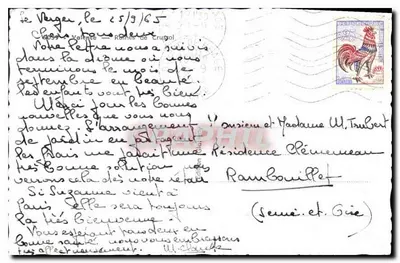 le Verger, le 25/9/65
Chers tous deux
Votre lettre nous a suivis
dans la drome où nous
terminons le mois de
septembre en beauté.
Les enfants vont très bien.
Merci pour les bonnes
nouvelles que vous nous
donnez. L'arrangement
de jardin en
les frais me paraît une
très bonne solution nous
verrons cela dès notre retour
Si Suzanne vient à
Paris elle sera toujours
la très bienvenue.
Vous espérant tous deux en
bonne santé nous vous embrassons
très affectueusement.
Monsieur et Madame M. Trubert
Résidence Clémenceau
Rambouillet
(Seine-et-Oise)